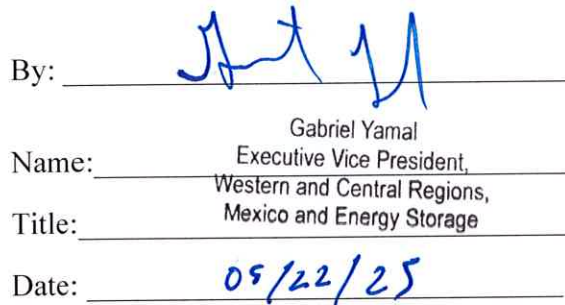 By:
Gabriel Yamal
Name: Executive Vice President,
Western and Central Regions,
Title: Mexico and Energy Storage
Date: 05/22/25